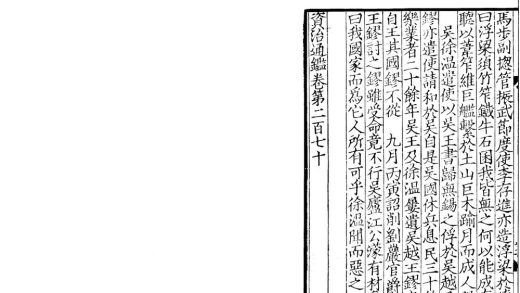 馬步副揔管振武節度使李存進亦造浮梁於
曰浮梁須竹笮鐵牛石囷我皆無之何以能成
聽以葦笮維巨艦繫於土山巨木踰月而成人
吳徐温遣使以吳王書歸無錫之俘於吳越
鏐亦遣使請和於吳自是吳國休兵息民三十
樂業者二十餘年吳王及徐温屢遺吳越王鏐
自王其國鏐不從　九月丙寅詔削劉巖官爵
王鏐討之鏐雖受命竟不行吳廬江公濛有材
曰我國家而為它人所有可乎徐温聞而惡之
資治通鑑卷第二百七十